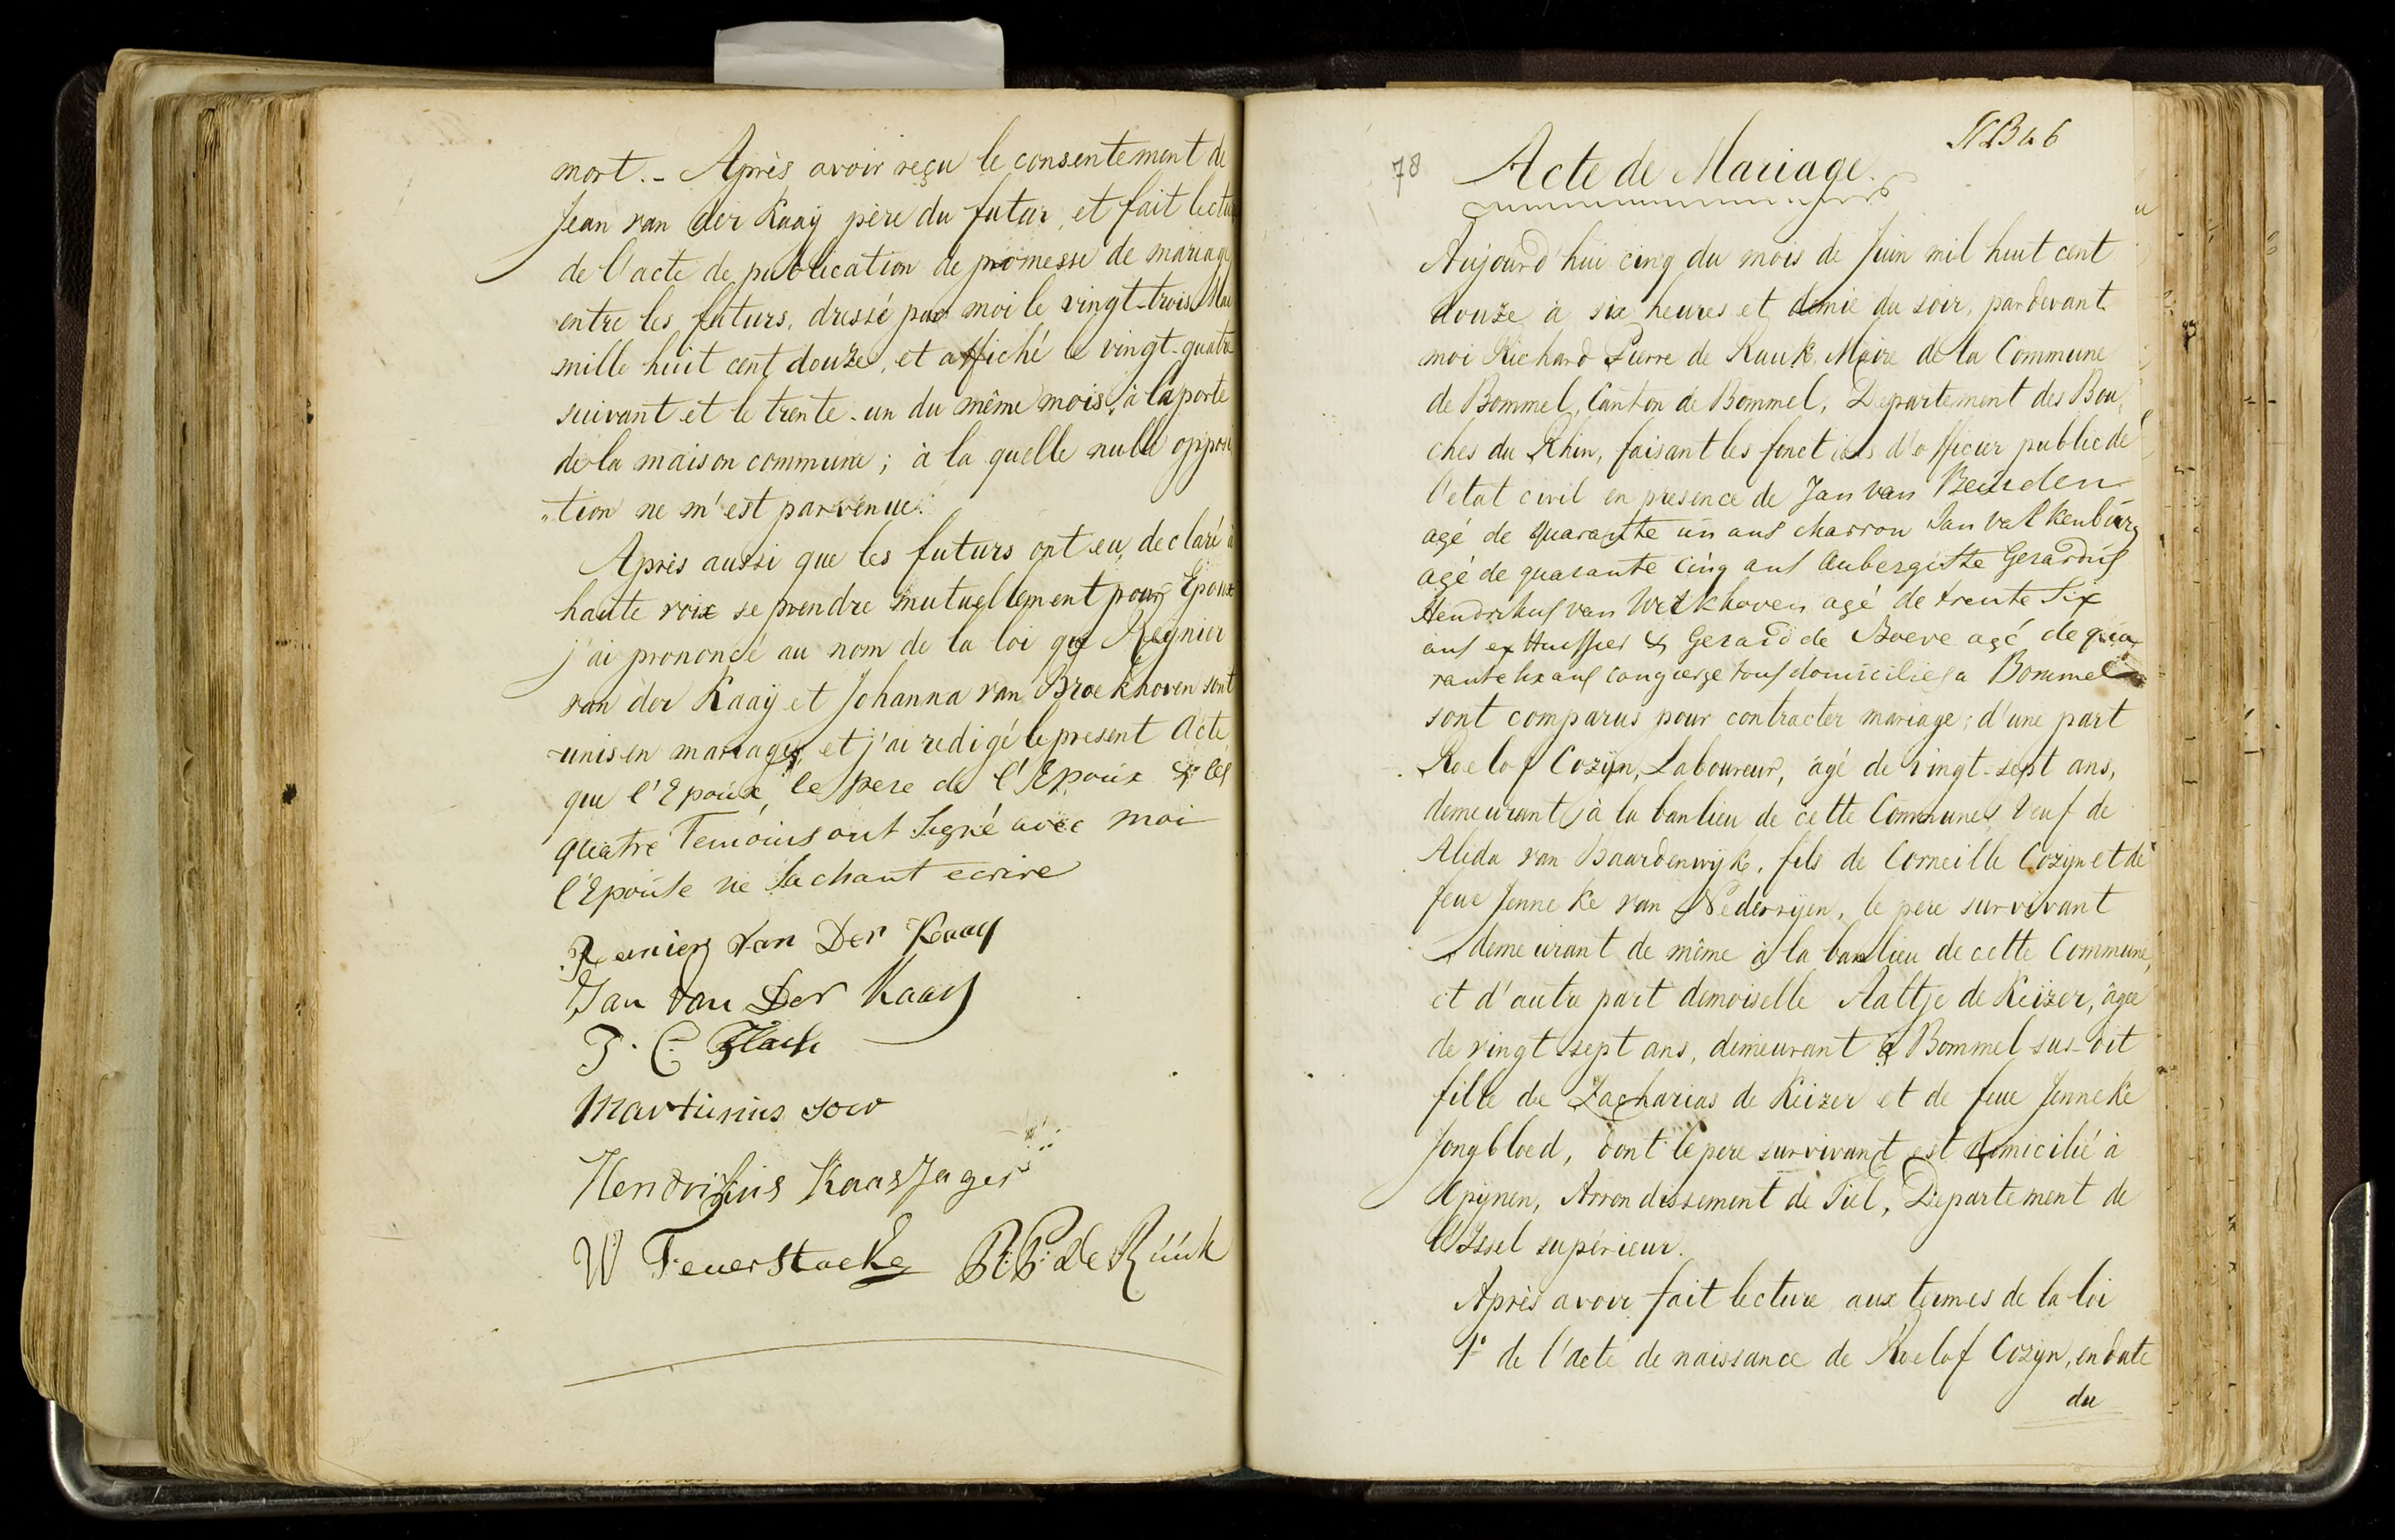 mort. - Après avoir reçu le consentement de
Jean van der Kaaÿ père du futur, et fait lectu
de l'acte de publication de promesse de mariag
entre les futurs, dressé par moi le vingt-trois Mai
mille huit cent douze, et affiché le vingt-quatre
suivant et le trente-un du même mois, à la porte
de la maison commune; à la quelle nulle opposi
"tion ne m'est parvenue.
Après aussi que les futurs ont eu declaré à
haute voix se prendre mutuellement pour Epoux
j'ai prononcé au nom de la loi que Reynier
van der Kaaÿ et Johanna van Broekhoven sont
unis en mariage, et j'ai redigé le present Acte
que l'Epoux, le pere de l'Epoux & les
quatre Temoins ont Signé avec moi
l'Epouse ne sachant ecrire
Reinier van Der Kaay
Jan van Der Kaay
J. C.
Martinus
Hendrikus Kaas Jager
W Feuerstacke R: P: de Rúúk
NB 46
78 Acte de Mariage.
Aujourd'hui cinq du mois de Juin mil huit cent
douze à six heures et demie du soir, pardevant
moi Richard Pierre de Ruuk Maire de la Commune
de Bommel, Canton de Bommel, Departement des Bou-
ches du Rhin, faisant les fonctions d'officier public de
l'etat civil en presence de Jan van Beinden
agé de quarante un ans charron Jan valkenburg
agé de quarante cinq ans Aubergiste Gerardus
Hendrikus van Welkhoven agé de trente Six
ans ex Huissier & Gerard de Boeve agé de qua
rante six ans Congierge tous domicilies a Bommel
sont comparus pour contracter mariage; d'une part
Roelof Cozijn, Laboureur, âgé de vingt-sept ans,
demeurant à la banlieu de cette Commune, Veuf de
Alida van Baardenwijk, fils de Corneille Cozijn et de
feue Jenneke van Nederrijen, le pere survivant
demeurant de même à la banlieu de cette Commune,
et d'autre part demoiselle Aaltje de Keizer, âgée
de vingt-sept ans, demeurant à Bommel sus-dit
fille de Zacharias de Keizer et de feue Jenneke
Jongbloed, dont le pere survivant est domicilié à
Opijnen, Arrondissement de Tiel, Departement de
l'Issel supérieur.
Après avoir fait lecture aux termes de la loi
1° de l'acte de naissance de Roelof Cozijn, en date
du